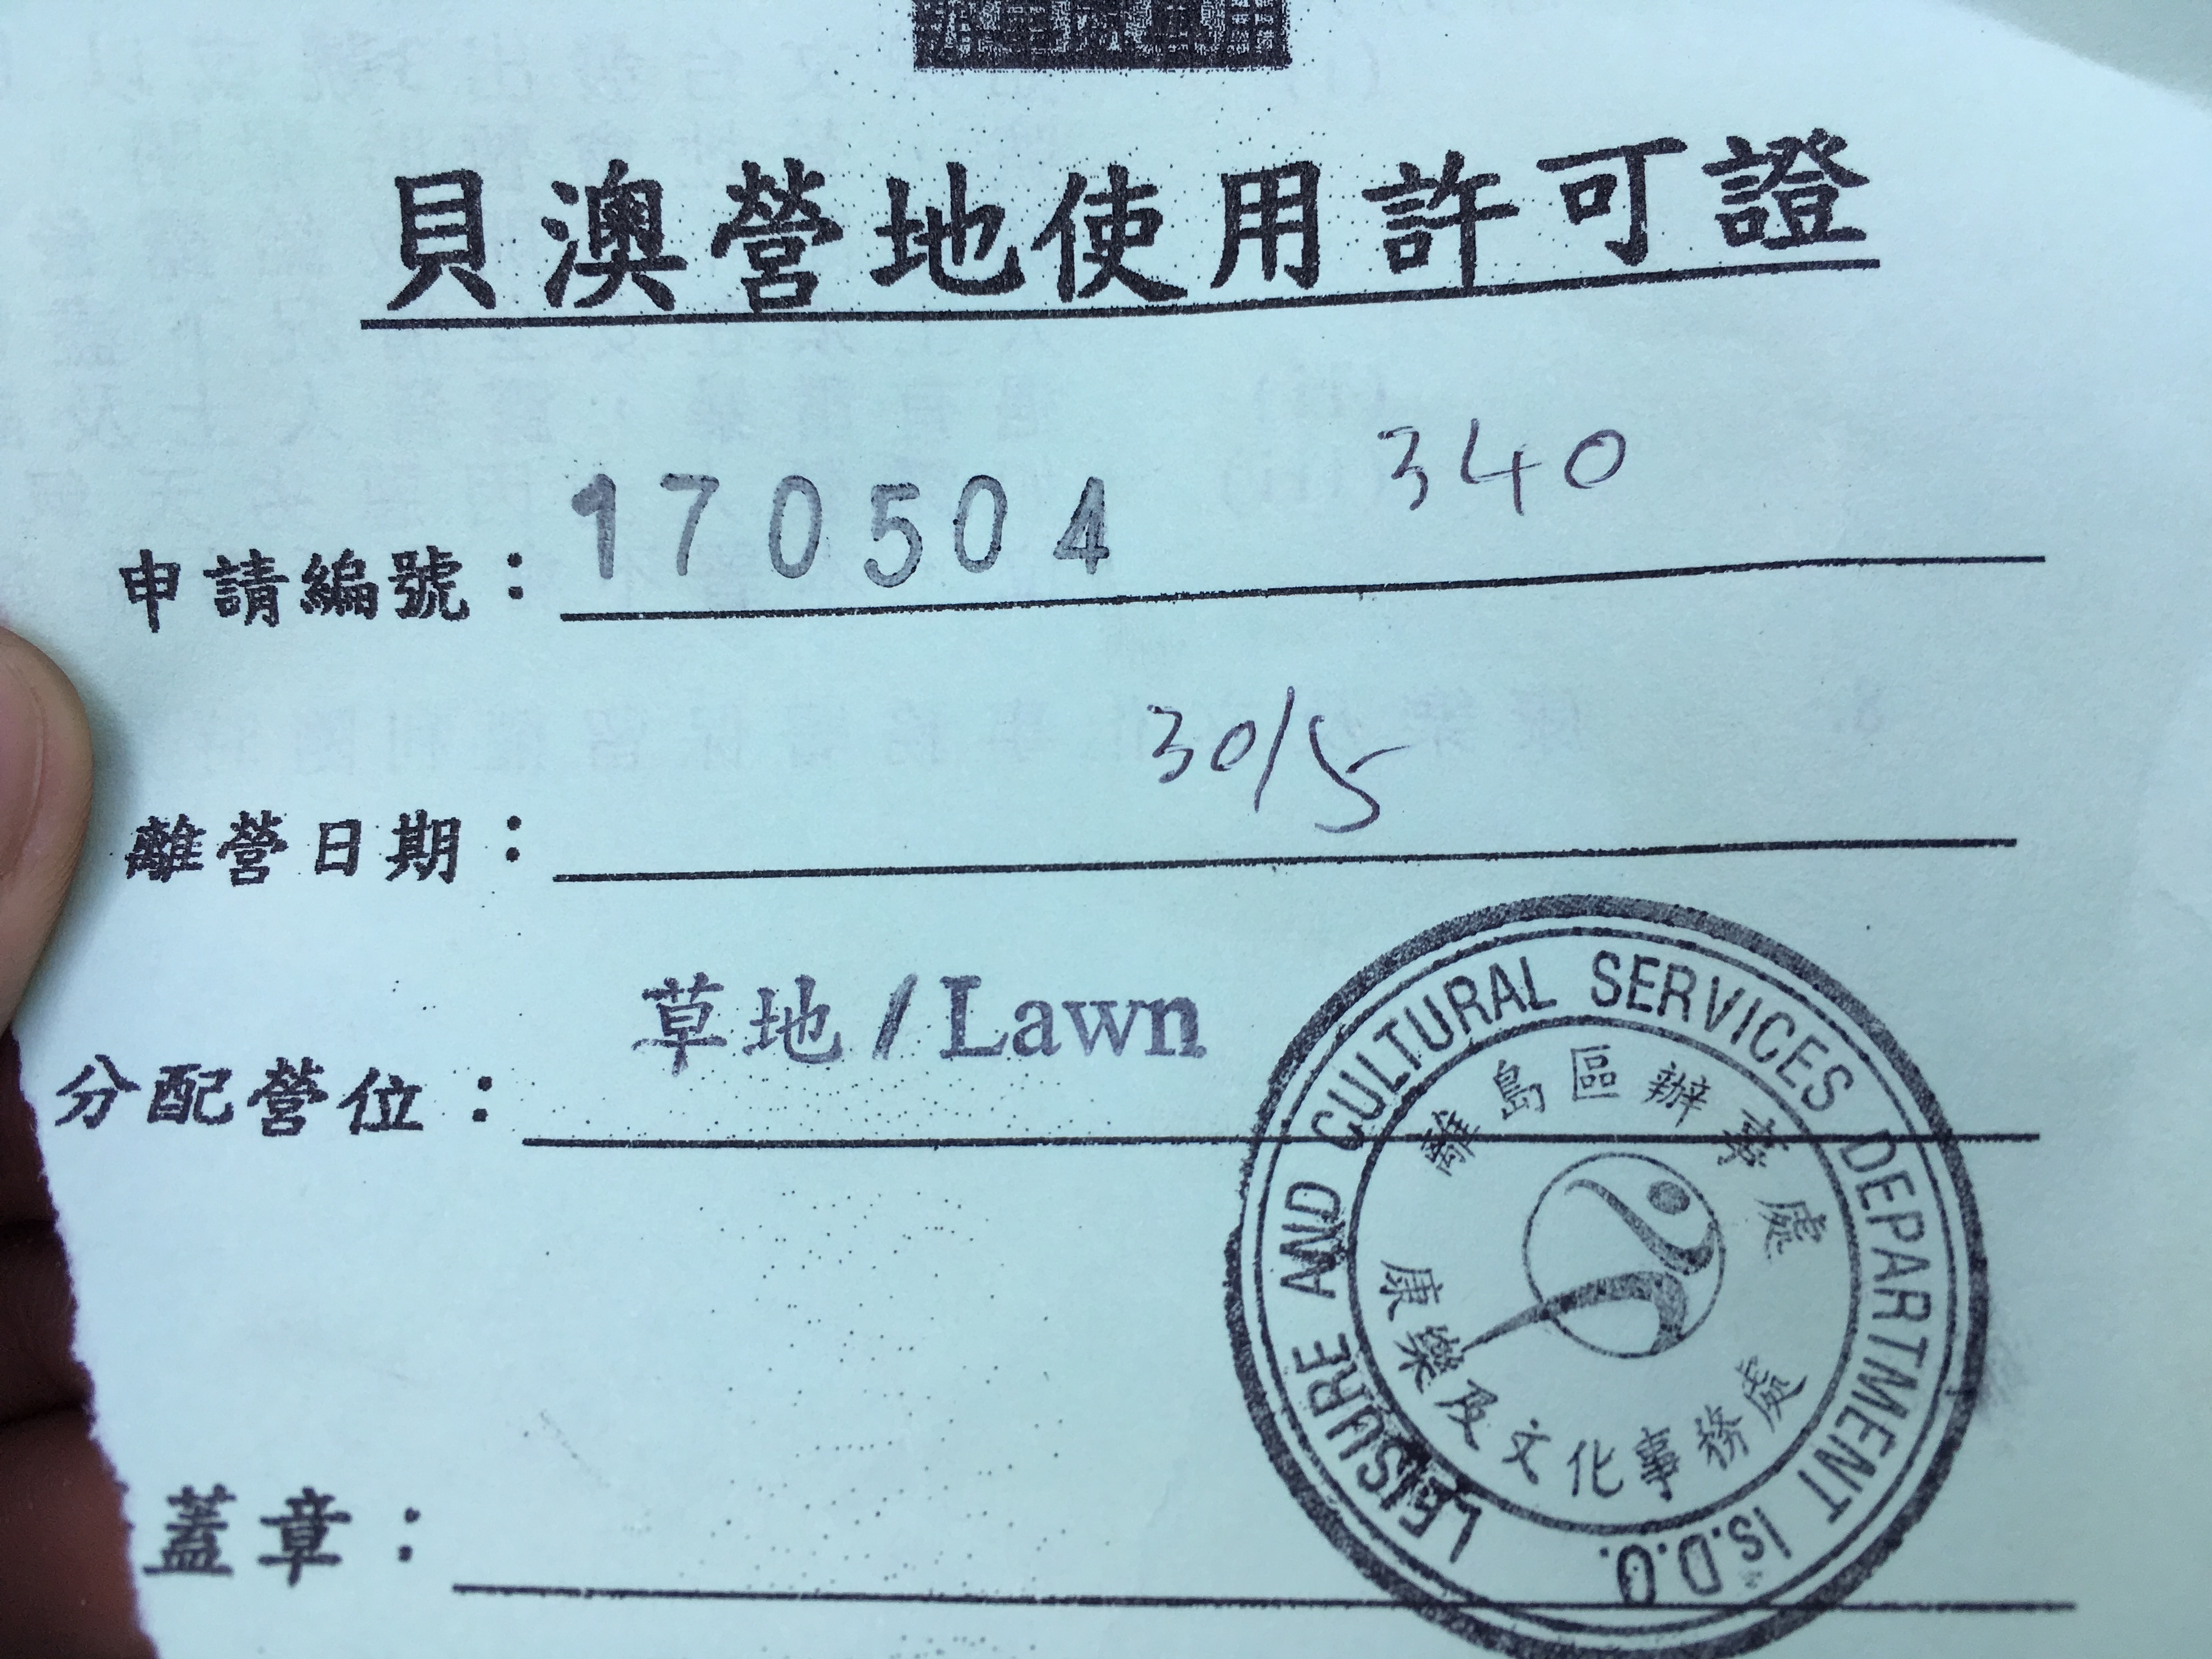 貝澳營地使用許可證
申請編號：170504 340
離營日期：30/5
分配營位：草地 / Lawn
蓋章：
LEISURE AND CULTURAL SERVICES DEPARTMENT Is.D.O.
離島區辦事處
康樂及文化事務處